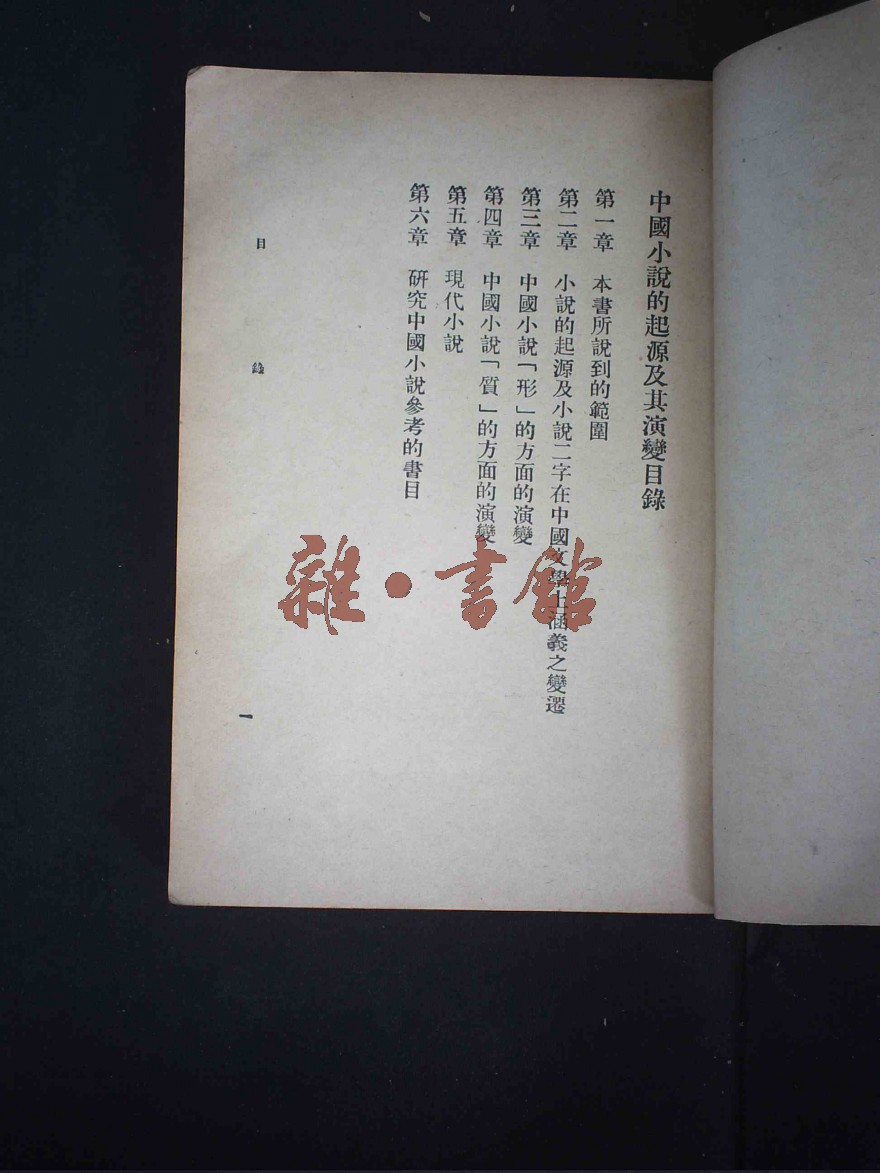 中國小說的起源及其演變目錄
第一章　本書所說到的範圍
第二章　小說的起源及小說二字在中國文學上涵義之變遷
第三章　中國小說「形」的方面的演變
第四章　中國小說「質」的方面的演變
第五章　現代小說
第六章　研究中國小說參考的書目
目　錄
一
雜•書館